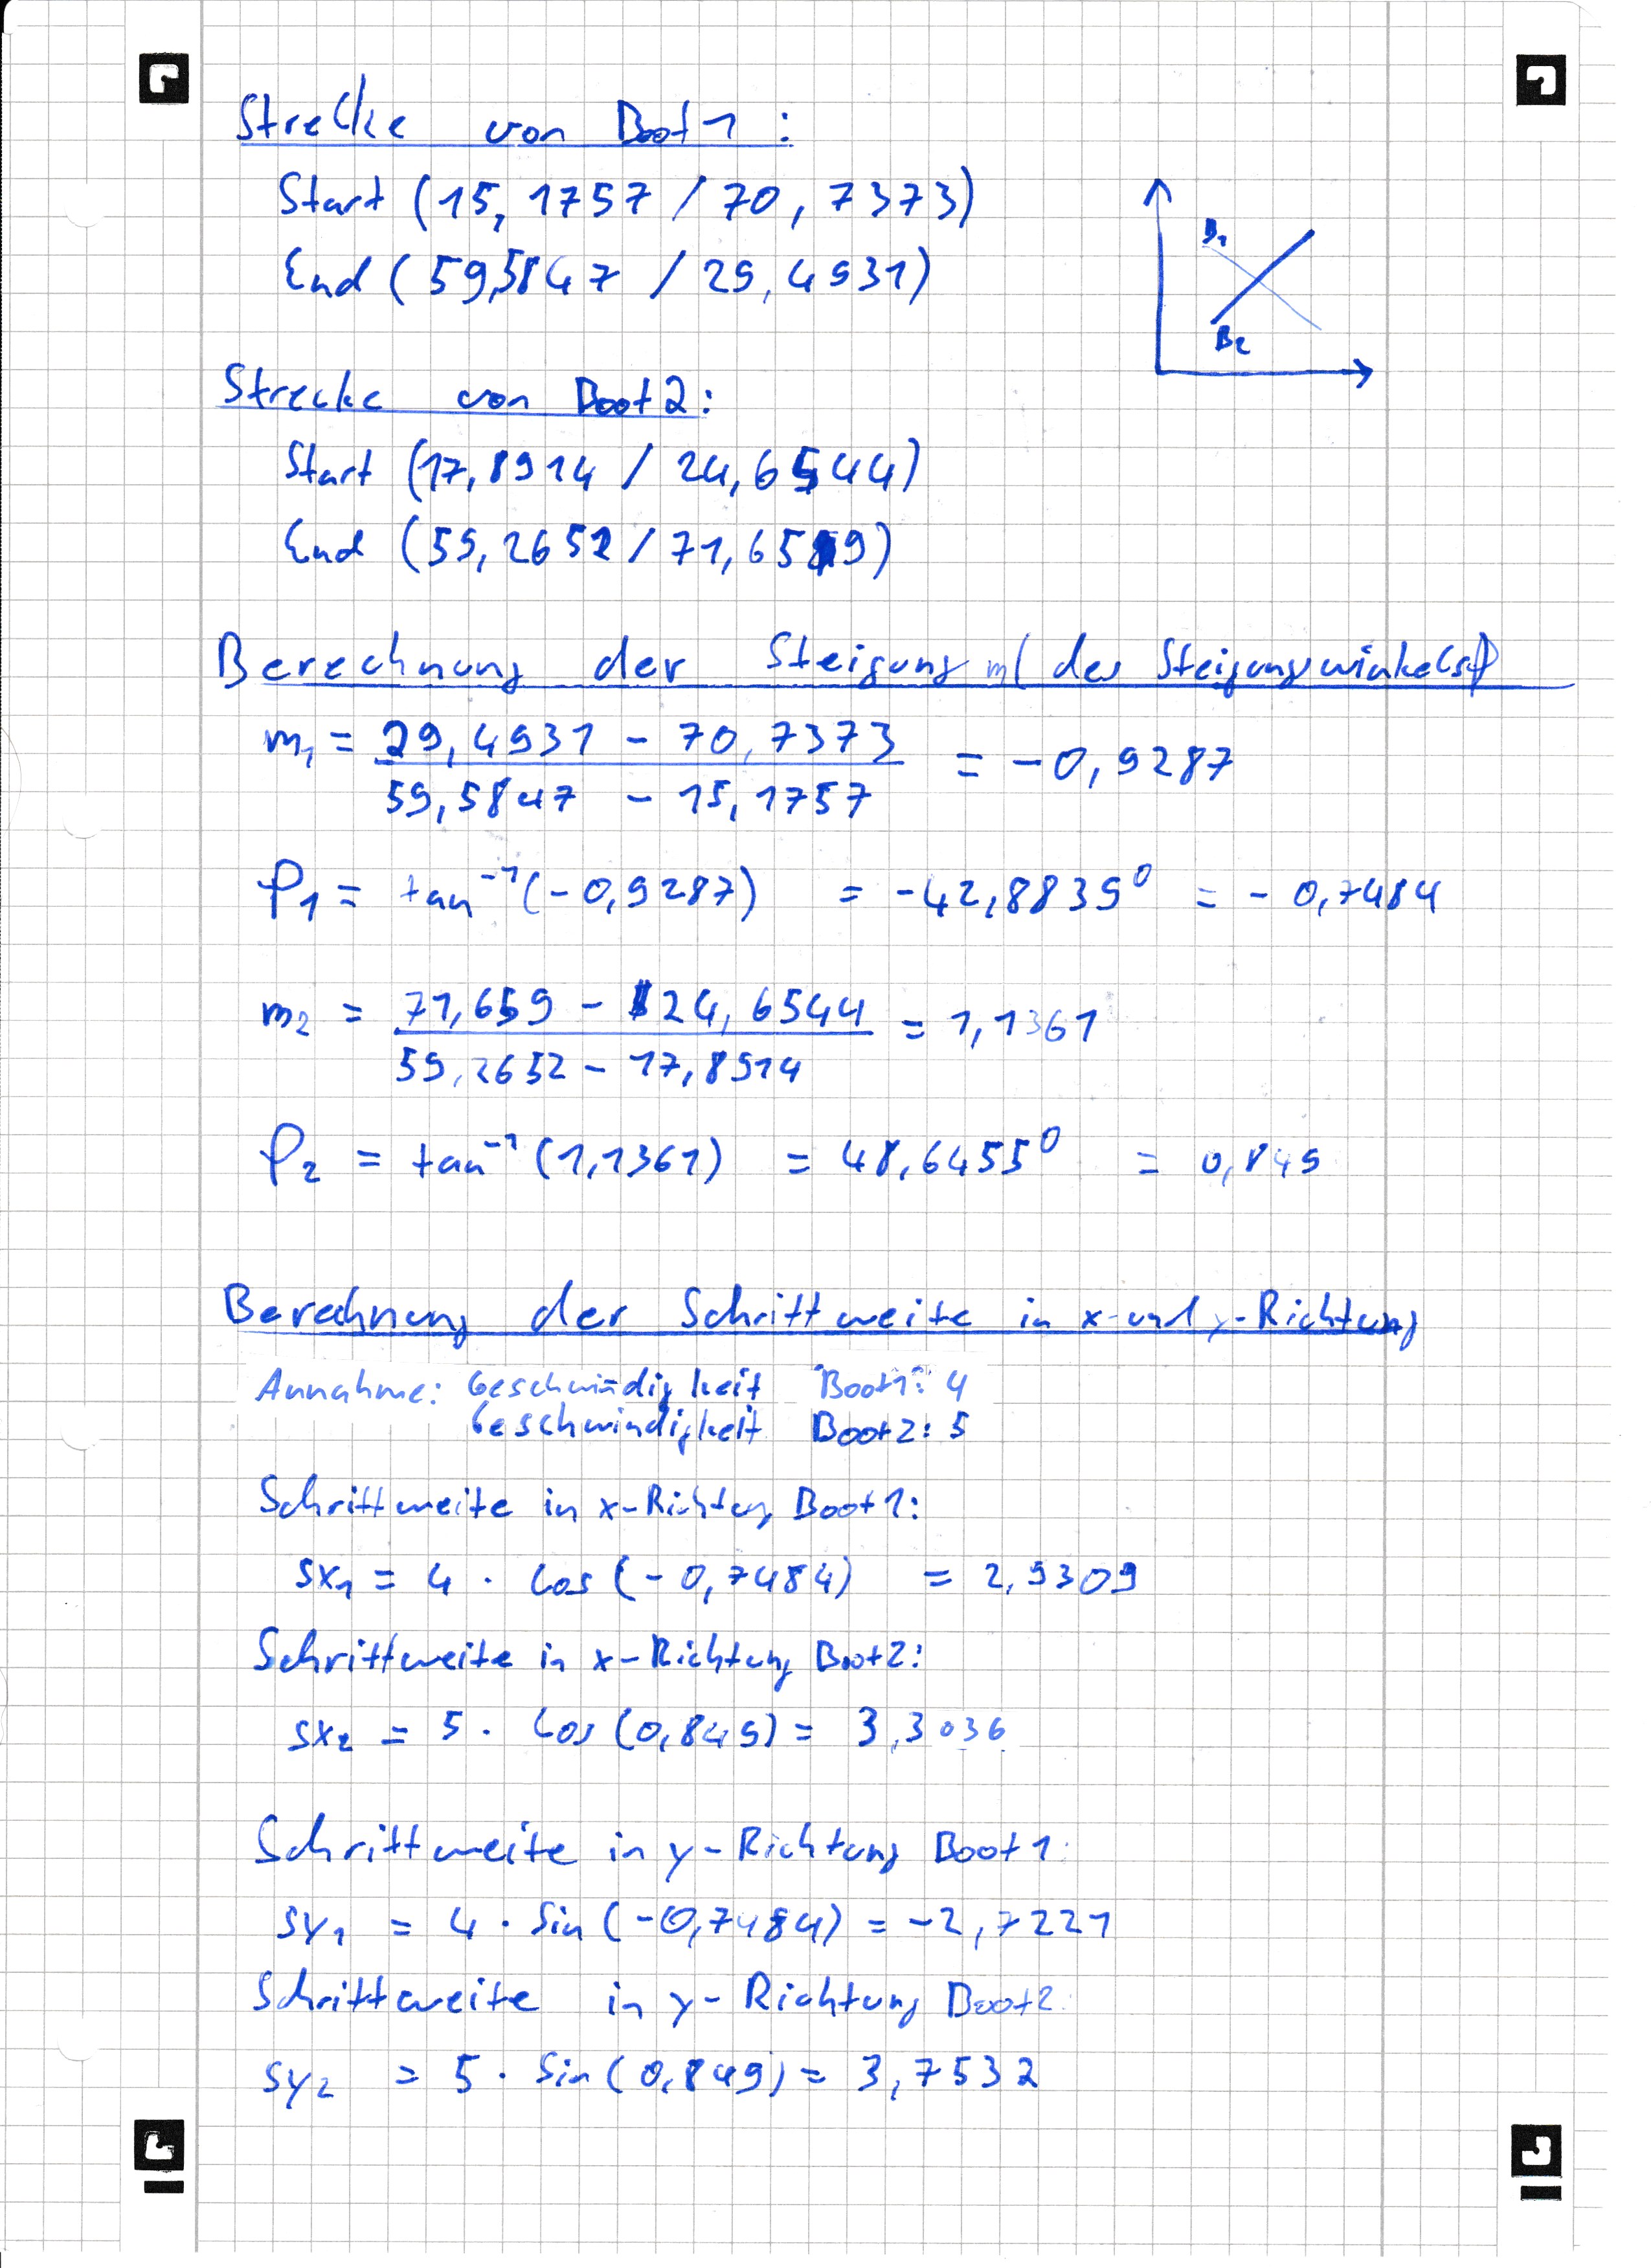 Strecke von Boot 1:
Start (15,1757 / 70,7373)
End (59,5847 / 29,4931)
B₁
B₂
Strecke von Boot 2:
Start (17,8914 / 24,6544)
End (59,2652 / 71,659)
Berechnung der Steigung m (des Steigungswinkels φ)
m₁ = (29,4931 - 70,7373) / (59,5847 - 15,1757) = -0,9287
φ₁ = tan⁻¹(-0,9287) = -42,8839° = -0,7484
m₂ = (71,659 - 24,6544) / (59,2652 - 17,8914) = 1,1361
φ₂ = tan⁻¹(1,1361) = 48,6455° = 0,849
Berechnung der Schrittweite in x- und y-Richtung
Annahme: Geschwindigkeit Boot 1: 4
Geschwindigkeit Boot 2: 5
Schrittweite in x-Richtung Boot 1:
sx₁ = 4 · cos(-0,7484) = 2,9309
Schrittweite in x-Richtung Boot 2:
sx₂ = 5 · cos(0,849) = 3,3036
Schrittweite in y-Richtung Boot 1:
sy₁ = 4 · sin(-0,7484) = -2,7221
Schrittweite in y-Richtung Boot 2:
sy₂ = 5 · sin(0,849) = 3,7532